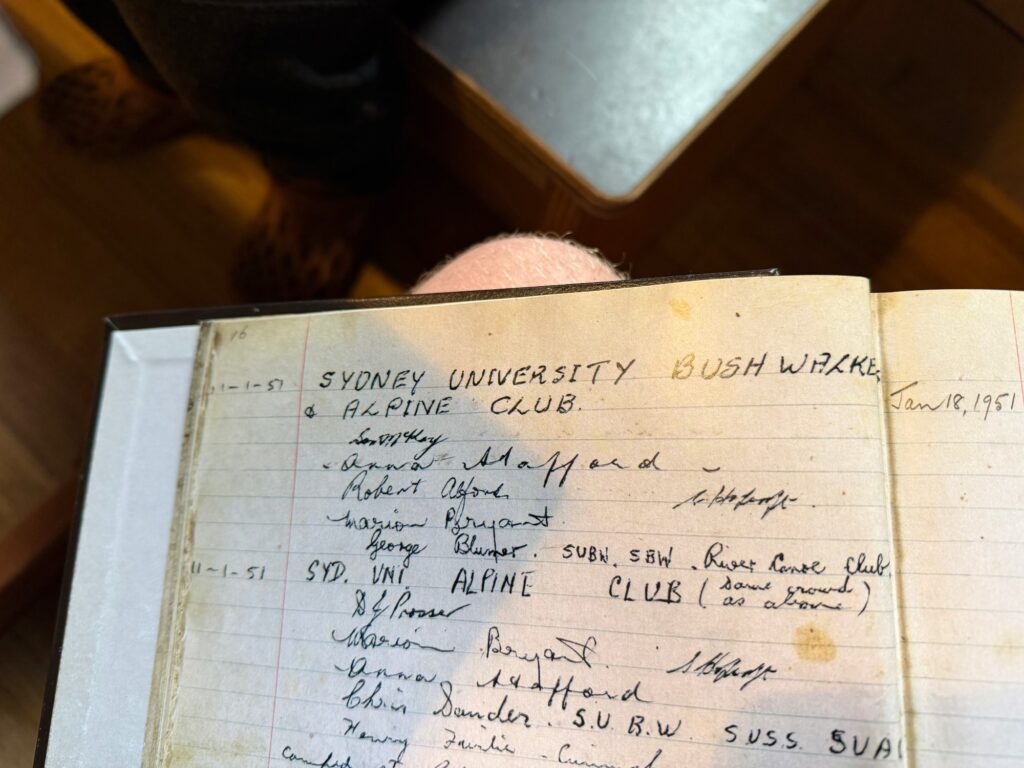 16
11-1-51 SYDNEY UNIVERSITY BUSH WALKE
& ALPINE CLUB.
Anna Stafford
Robert Alford
Marion Bryant.
George Blumer. SUBW. SBW. River Canoe Club.
11-1-51 SYD. UNI. ALPINE CLUB (same crowd
as above)
D J Prosser
Marion Bryant.
Anna Stafford
Chris Sander. S.U.B.W. S.U.S.S. SUA
Henry Fairlie -
Jan 18, 1951